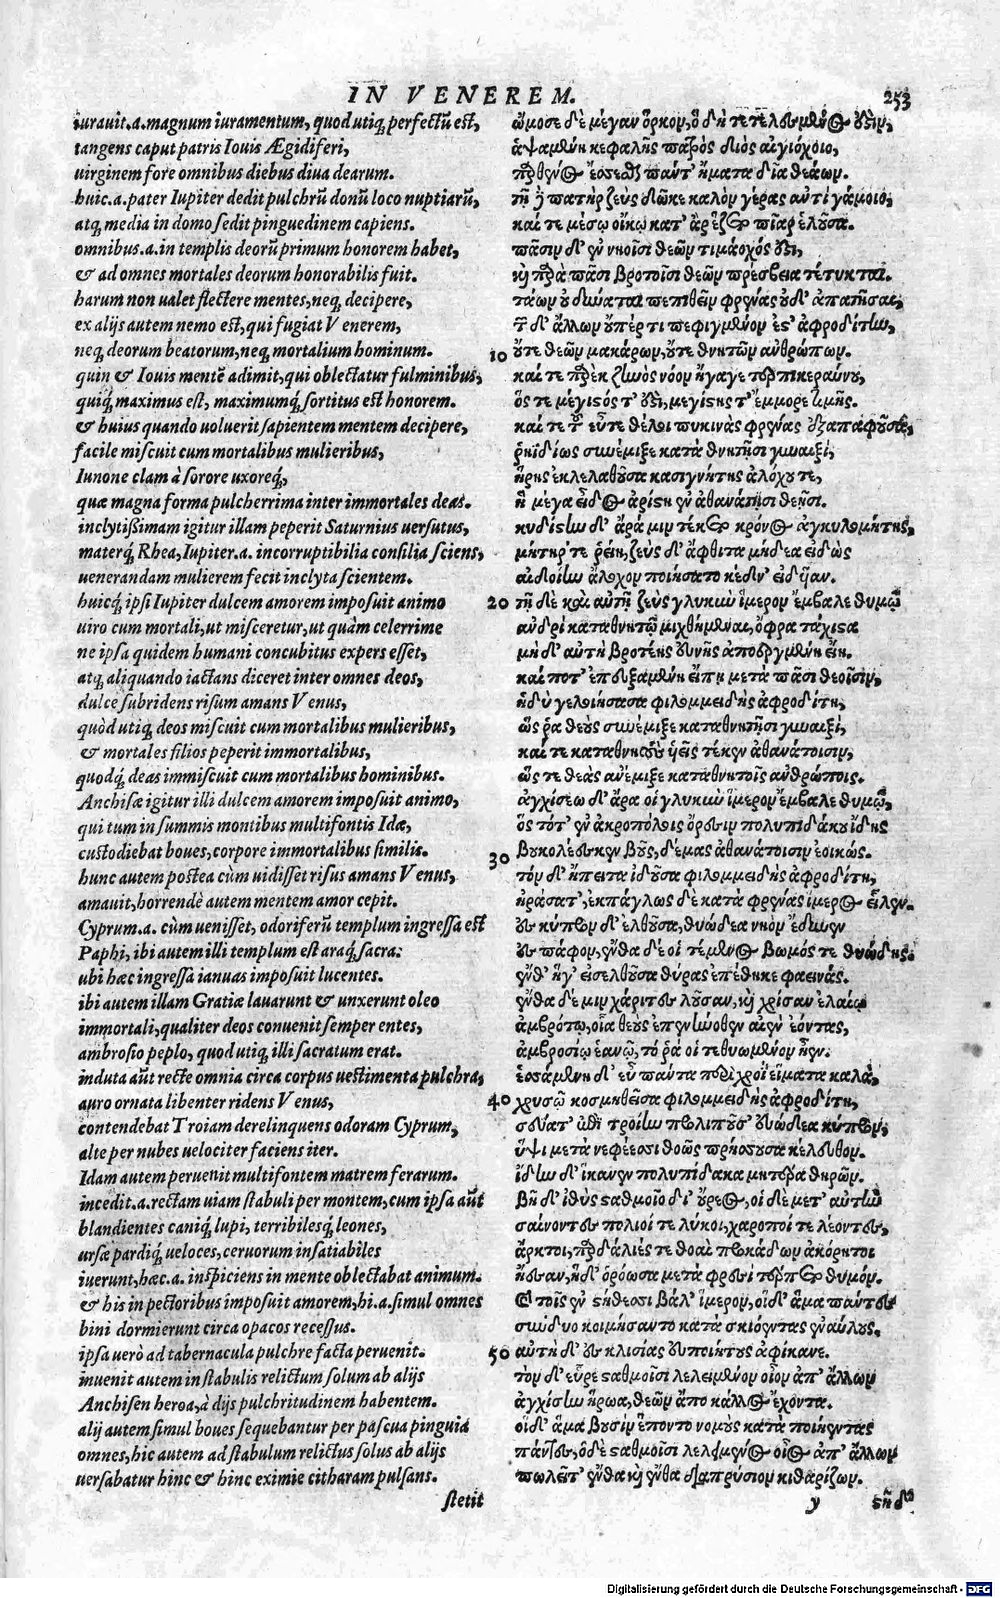 IN VENEREM.
253
iurauit.a.magnum iuramentum, quod utiq; perfectũ est,
tangens caput patris Iouis Ægidiferi,
uirginem fore omnibus diebus diua dearum.
huic.a.pater Iupiter dedit pulchrũ donũ loco nuptiarũ,
atq; media in domo sedit pinguedinem capiens.
omnibus.a.in templis deorũ primum honorem habet,
& ad omnes mortales deorum honorabilis fuit.
harum non ualet flectere mentes, neq; decipere,
ex alijs autem nemo est, qui fugiat Venerem,
neq; deorum beatorum, neq; mortalium hominum.
quin & Iouis mentẽ adimit, qui oblectatur fulminibus,
quiq; maximus est, maximumq; sortitus est honorem.
& huius quando uoluerit sapientem mentem decipere,
facile miscuit cum mortalibus mulieribus,
Iunone clam à sorore uxoreq;,
quæ magna forma pulcherrima inter immortales deas.
inclytißimam igitur illam peperit Saturnius uersutus,
materq; Rhea, Iupiter.a. incorruptibilia consilia sciens,
uenerandam mulierem fecit inclyta scientem.
huicq; ipsi Iupiter dulcem amorem imposuit animo
uiro cum mortali, ut misceretur, ut quàm celerrime
ne ipsa quidem humani concubitus expers esset,
atq; aliquando iactans diceret inter omnes deos,
dulce subridens risum amans Venus,
quòd utiq; deos miscuit cum mortalibus mulieribus,
& mortales filios peperit immortalibus,
quodq; deas immiscuit cum mortalibus hominibus.
Anchisæ igitur illi dulcem amorem imposuit animo,
qui tum in summis montibus multifontis Idæ,
custodiebat boues, corpore immortalibus similis.
hunc autem postea cùm uidisset risus amans Venus,
amauit, horrendè autem mentem amor cepit.
Cyprum.a. cùm uenisset, odoriferũ templum ingressa est
Paphi, ibi autem illi templum est araq; sacra:
ubi hæc ingressa ianuas imposuit lucentes.
ibi autem illam Gratiæ lauarunt & unxerunt oleo
immortali, qualiter deos conuenit semper entes,
ambrosio peplo, quod utiq; illi sacratum erat.
induta aũt recte omnia circa corpus uestimenta pulchra,
auro ornata libenter ridens Venus,
contendebat Troiam derelinquens odoram Cyprum,
alte per nubes uelociter faciens iter.
Idam autem peruenit multifontem matrem ferarum.
incedit.a.rectam uiam stabuli per montem, cum ipsa aũt
blandientes caniq; lupi, terribilesq; leones,
ursæ pardiq; ueloces, ceruorum insatiabiles
iuerunt, hæc.a. inspiciens in mente oblectabat animum.
& his in pectoribus imposuit amorem, hi.a. simul omnes
bini dormierunt circa opacos recessus.
ipsa uerò ad tabernacula pulchre facta peruenit.
inuenit autem in stabulis relictum solum ab alijs
Anchisen heroa, à dijs pulchritudinem habentem.
alij autem simul boues sequebantur per pascua pinguia
omnes, hic autem ad stabulum relictus solus ab alijs
uersabatur hinc & hinc eximie citharam pulsans.
stetit
ὤμοσε δὲ μέγαν ὅρκον, ὃ δὴ τετελεσμένος ἐςὶν,
ἁψαμένη κεφαλῆς πατρὸς διὸς αἰγιόχοιο,
παρθένος ἔσεσθαι πάντ' ἤματα δῖα θεάων.
τῇ δὲ πατὴρ ζεὺς δῶκε καλὸν γέρας ἀντὶ γάμοιο,
καί τε μέσῳ οἴκῳ κατ' ἄρ ἕζετο πῖαρ ἑλοῦσα.
πᾶσιν δ' ἐν νηοῖσι θεῶν τιμάοχός ἐςι,
καὶ παρὰ πᾶσι βροτοῖσι θεῶν πρέσβεια τέτυκται.
τάων οὐ δύναται πεπιθεῖν φρένας οὐδ' ἀπατῆσαι,
τῶν δ' ἄλλων οὔπέρ τι πεφυγμένον ἔς' ἀφροδίτην,
10 οὔτε θεῶν μακάρων, οὔτε θνητῶν ἀνθρώπων.
καί τε παρὲκ ζηνὸς νόον ἤγαγε τερπικεραύνου,
ὅς τε μέγιςός τ' ἐςὶ, μεγίςης τ' ἔμμορε τιμῆς.
καί τε τοῦ εὖτε θέλοι πυκινὰς φρένας ἐξαπαφοῦσα,
ῥηϊδίως συνέμιξε καταθνητῇσι γυναιξὶ,
ἥρης ἐκλελαθοῦσα κασιγνήτης ἀλόχου τε,
ἣ μέγα εἶδος ἀρίςη ἐν ἀθανάτῃσι θεῇσι.
κυδίςην δ' ἄρα μιν τέκετο κρόνος ἀγκυλομήτης,
μήτηρ τε ῥείη, ζεὺς δ' ἄφθιτα μήδεα εἰδὼς
αἰδοίην ἄλοχον ποιήσατο κέδν' εἰδυῖαν.
20 τῇ δὲ καὶ αὐτῇ ζεὺς γλυκὺν ἵμερον ἔμβαλε θυμῷ
ἀνδρὶ καταθνητῷ μιχθήμεναι, ὄφρα τάχιςα
μὴ δ' αὐτὴ βροτέης εὐνῆς ἀποεργμένη εἴη.
καί ποτ' ἐπευξαμένη εἴπῃ μετὰ πᾶσι θεοῖσιν,
ἡδὺ γελοιήσασα φιλομμειδὴς ἀφροδίτη,
ὥς ῥα θεοὺς συνέμιξε καταθνητῇσι γυναιξὶ,
καί τε καταθνητοὺς υἱεῖς τέκεν ἀθανάτοισιν,
ὥς τε θεὰς ἀνέμιξε καταθνητοῖς ἀνθρώποις.
ἀγχίσεω δ' ἄρα οἱ γλυκὺν ἵμερον ἔμβαλε θυμῷ,
ὃς τότ' ἐν ἀκροπόλοις ὄρεσιν πολυπιδάκου ἴδης
30 βουκολέεσκεν βοῦς, δέμας ἀθανάτοισιν ἐοικώς.
τὸν δ' ἤπειτα ἰδοῦσα φιλομμειδὴς ἀφροδίτη,
ἠράσατ', ἐκπάγλως δὲ κατὰ φρένας ἵμερος εἷλεν.
ἐς κύπρον δ' ἐλθοῦσα, θυώδεα νηὸν ἔδυνεν
ἐς πάφον, ἔνθα δέ οἱ τέμενος βωμός τε θυώδης.
ἔνθ' ἥγ' εἰσελθοῦσα θύρας ἐπέθηκε φαεινάς.
ἔνθα δέ μιν χάριτες λοῦσαν, καὶ χρίσαν ἐλαίῳ
ἀμβρότῳ, οἷα θεοὺς ἐπενήνοθεν αἰὲν ἐόντας,
ἀμβροσίῳ ἑανῷ, τό ῥά οἱ τεθυωμένον ἦεν.
ἑσσαμένη δ' εὖ πάντα περὶ χροῒ εἵματα καλὰ,
40 χρυσῷ κοσμηθεῖσα φιλομμειδὴς ἀφροδίτη,
σεύατ' ἐπὶ τροίην προλιποῦσ' εὐώδεα κύπρον,
ὕψι μετὰ νεφέεσσι θοῶς πρήσσουσα κέλευθον.
ἴδην δ' ἵκανεν πολυπίδακα μητέρα θηρῶν.
βῆ δ' ἰθὺς ςαθμοῖο δι' οὔρεος, οἱ δὲ μετ' αὐτὴν
σαίνοντες πολιοί τε λύκοι, χαροποί τε λέοντες,
ἄρκτοι, παρδάλιές τε θοαὶ προκάδων ἀκόρητοι
ἤεσαν, ἡ δ' ὁρόωσα μετὰ φρεσὶ τέρπετο θυμόν.
καὶ τοῖς ἐν ςήθεσσι βάλ' ἵμερον, οἱ δ' ἅμα πάντες
σύνδυο κοιμήσαντο κατὰ σκιόεντας ἐναύλους.
50 αὐτὴ δ' ἐς κλισίας εὐποιήτους ἀφίκανε.
τὸν δ' εὗρε ςαθμοῖσι λελειμμένον οἶον ἀπ' ἄλλων
ἀγχίσην ἥρωα, θεῶν ἄπο κάλλος ἔχοντα.
οἱ δ' ἅμα βουσὶν ἕποντο νομοὺς κατὰ ποιήεντας
πάντες, ὁ δὲ ςαθμοῖσι λελειμμένος οἶος ἀπ' ἄλλων
πωλεῖτ' ἔνθα καὶ ἔνθα διαπρύσιον κιθαρίζων.
y
ςῆ δ'
Digitalisierung gefördert durch die Deutsche Forschungsgemeinschaft - DFG